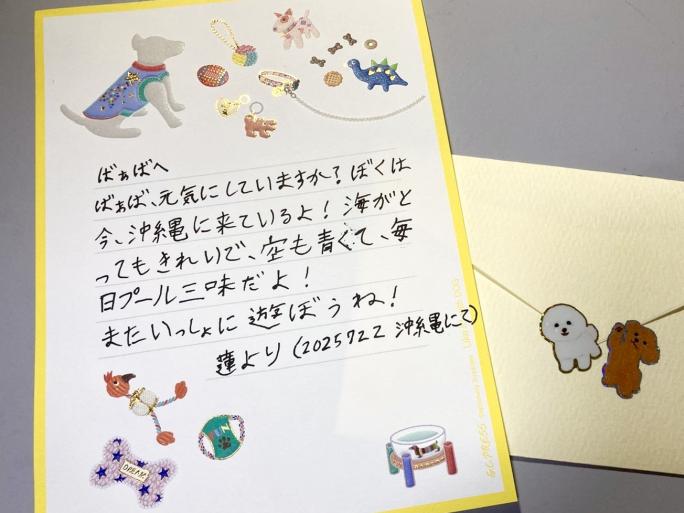 ばぁばへ
ばぁば、元気にしていますか？ぼくは
今、沖縄に来ているよ！海がと
ってもきれいで、空も青くて、毎
日プール三味だよ！
またいっしょに遊ぼうね！
蓮より（2025722 沖縄にて）
DREAM
G.C.PRESS